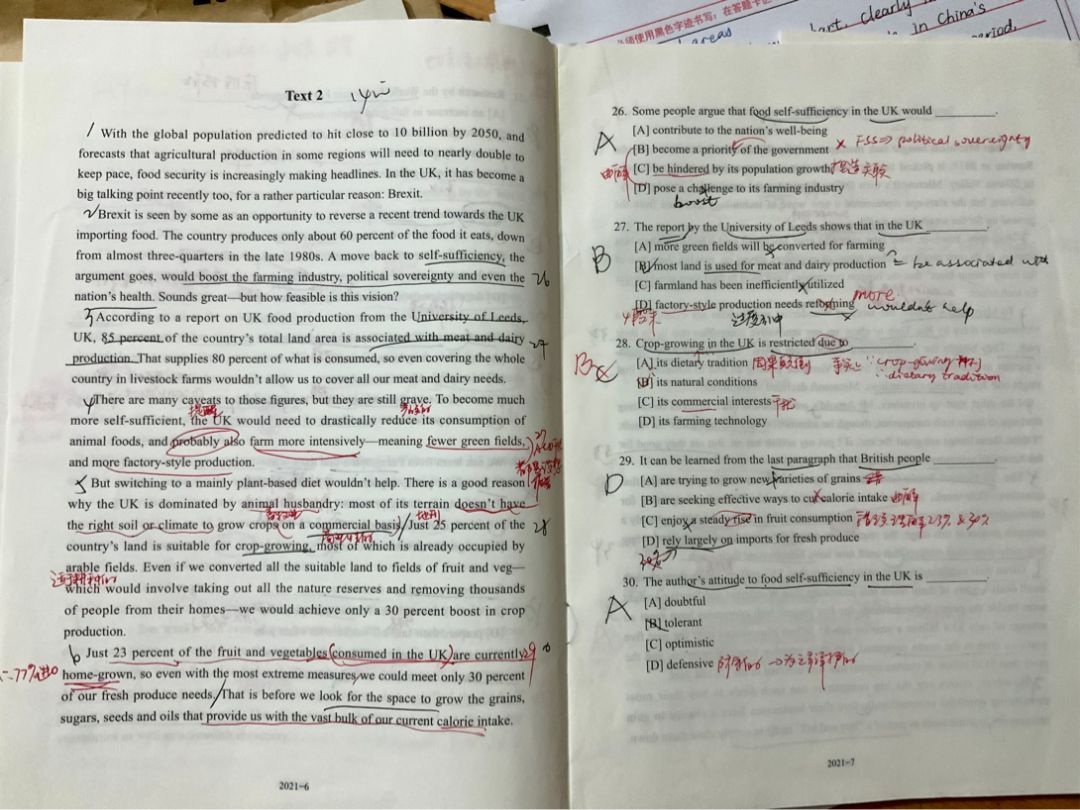 lart, clearly
in China's
period.
必须使用黑色字迹书写
areas
Text 2
With the global population predicted to hit close to 10 billion by 2050, and
forecasts that agricultural production in some regions will need to nearly double to
keep pace, food security is increasingly making headlines. In the UK, it has become a
big talking point recently too, for a rather particular reason: Brexit.
Brexit is seen by some as an opportunity to reverse a recent trend towards the UK
importing food. The country produces only about 60 percent of the food it eats, down
from almost three-quarters in the late 1980s. A move back to self-sufficiency, the
argument goes, would boost the farming industry, political sovereignty and even the 26
nation's health. Sounds great—but how feasible is this vision?
According to a report on UK food production from the University of Leeds,
UK, 85 percent of the country's total land area is associated with meat and dairy 27
production. That supplies 80 percent of what is consumed, so even covering the whole
country in livestock farms wouldn't allow us to cover all our meat and dairy needs.
There are many caveats to those figures, but they are still grave. To become much
提醒
more self-sufficient, the UK would need to drastically reduce its consumption of
animal foods, and probably also farm more intensively—meaning fewer green fields,
and more factory-style production.
But switching to a mainly plant-based diet wouldn't help. There is a good reason
why the UK is dominated by animal husbandry: most of its terrain doesn't have
地形
the right soil or climate to grow crops on a commercial basis. Just 25 percent of the 28
country's land is suitable for crop-growing, most of which is already occupied by
arable fields. Even if we converted all the suitable land to fields of fruit and veg—
which would involve taking out all the nature reserves and removing thousands
of people from their homes—we would achieve only a 30 percent boost in crop
production.
Just 23 percent of the fruit and vegetables consumed in the UK are currently 29
∴77%进口 home-grown, so even with the most extreme measures we could meet only 30 percent
of our fresh produce needs. That is before we look for the space to grow the grains,
sugars, seeds and oils that provide us with the vast bulk of our current calorie intake.
2021-6
26. Some people argue that food self-sufficiency in the UK would ________.
A
[A] contribute to the nation's well-being
[B] become a priority of the government × FSS⇒ political sovereignty
[C] be hindered by its population growth
[D] pose a challenge to its farming industry
boost
27. The report by the University of Leeds shows that in the UK ________.
B
[A] more green fields will be converted for farming
[B] most land is used for meat and dairy production = be associated with
[C] farmland has been inefficiently utilized
more
[D] factory-style production needs reforming wouldn't help
28. Crop-growing in the UK is restricted due to ________.
B
[A] its dietary tradition 因果颠倒 事实上 ∵ crop-growing
∴ dietary tradition
[B] its natural conditions
[C] its commercial interests 干扰
[D] its farming technology
29. It can be learned from the last paragraph that British people ________.
D
[A] are trying to grow new varieties of grains
[B] are seeking effective ways to cut calorie intake 曲解
[C] enjoy a steady rise in fruit consumption 23% & 30%
[D] rely largely on imports for fresh produce
30. The author's attitude to food self-sufficiency in the UK is ________.
A
[A] doubtful
[B] tolerant
[C] optimistic
[D] defensive
2021-7